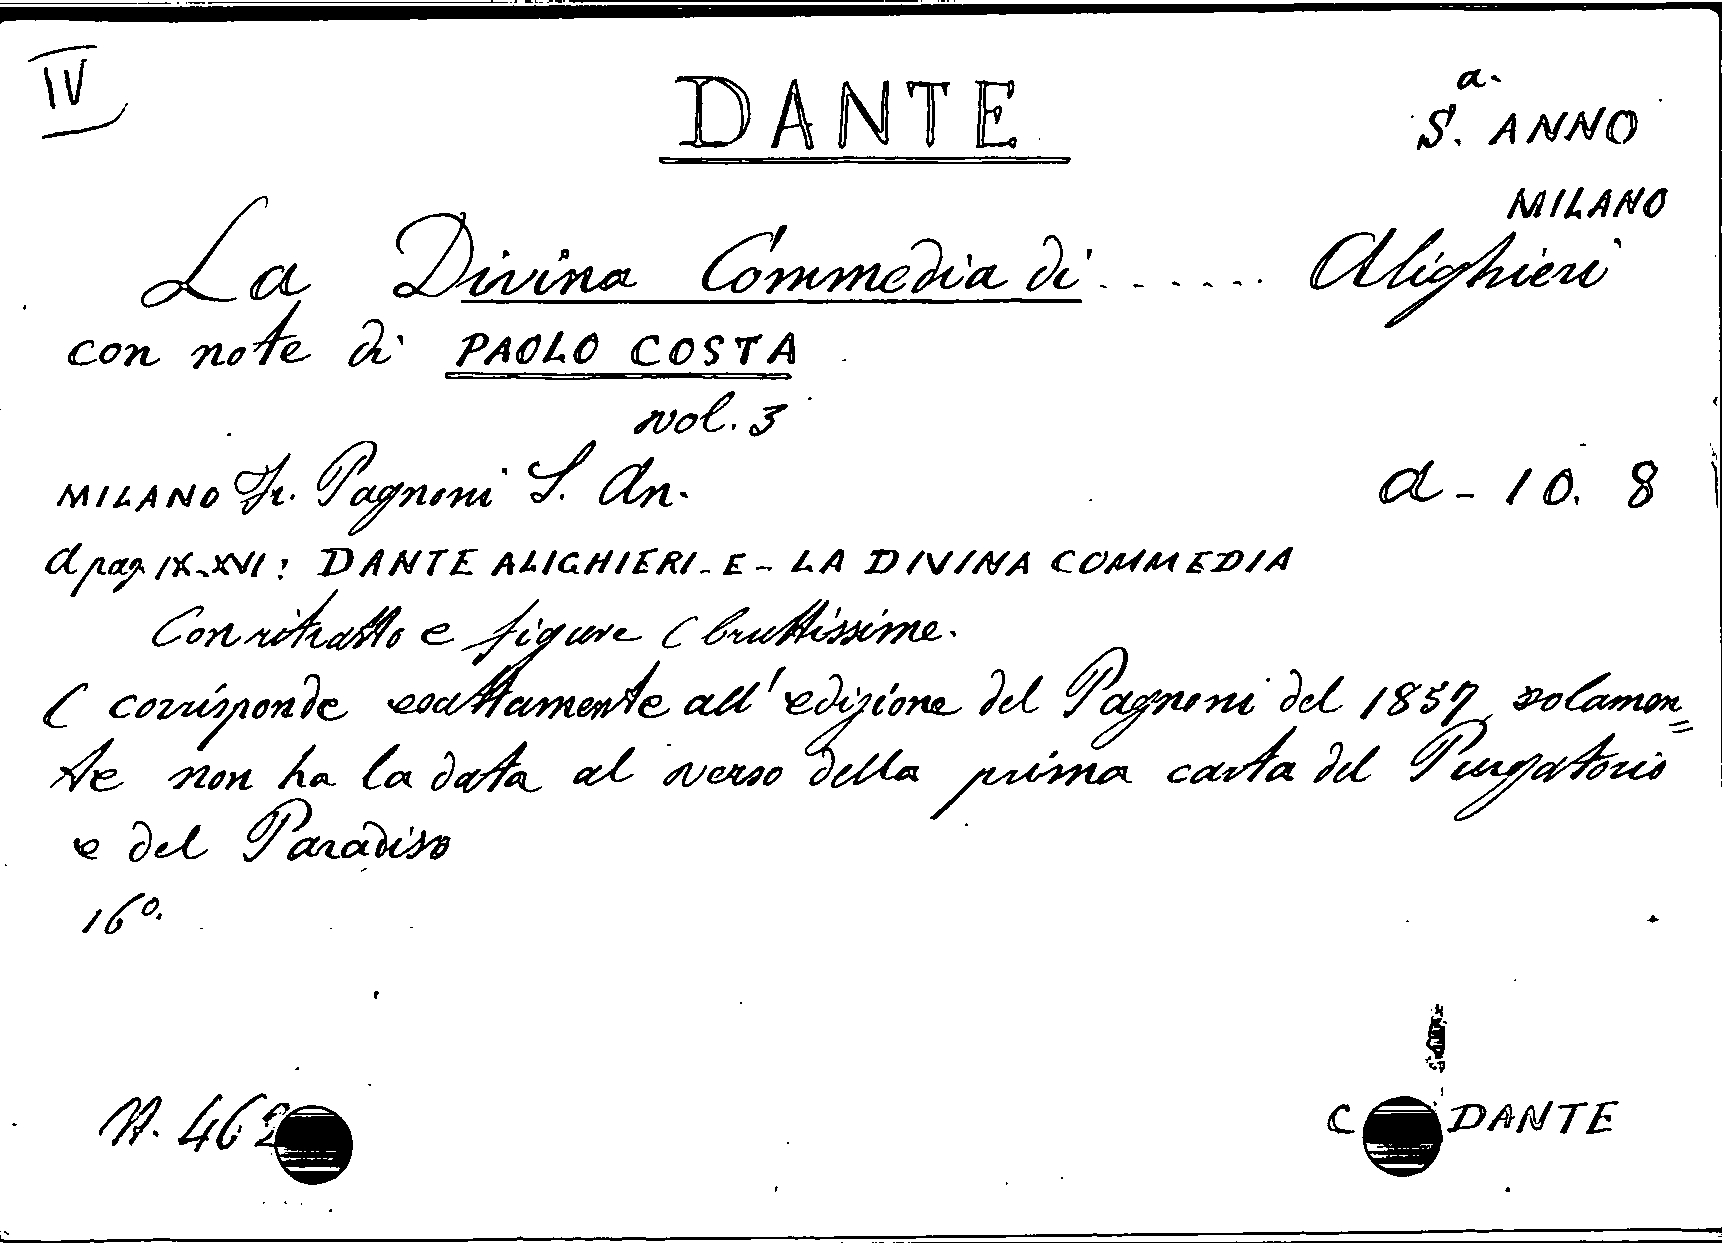 IV
DANTE
a.
S. ANNO
MILANO
La Divina Commedia di ...... Alighieri
con note di PAOLO COSTA
vol. 3
MILANO Fr. Pagnoni S. An.
a - 10. 8
A pag. IX-XVI: DANTE ALIGHIERI - E - LA DIVINA COMMEDIA
Con ritratto e figure ( bruttissime.
( corrisponde esattamente all'edizione del Pagnoni del 1857, solamen=
te non ha la data al verso della prima carta del Purgatorio
e del Paradiso
16º.
N. 462
C DANTE